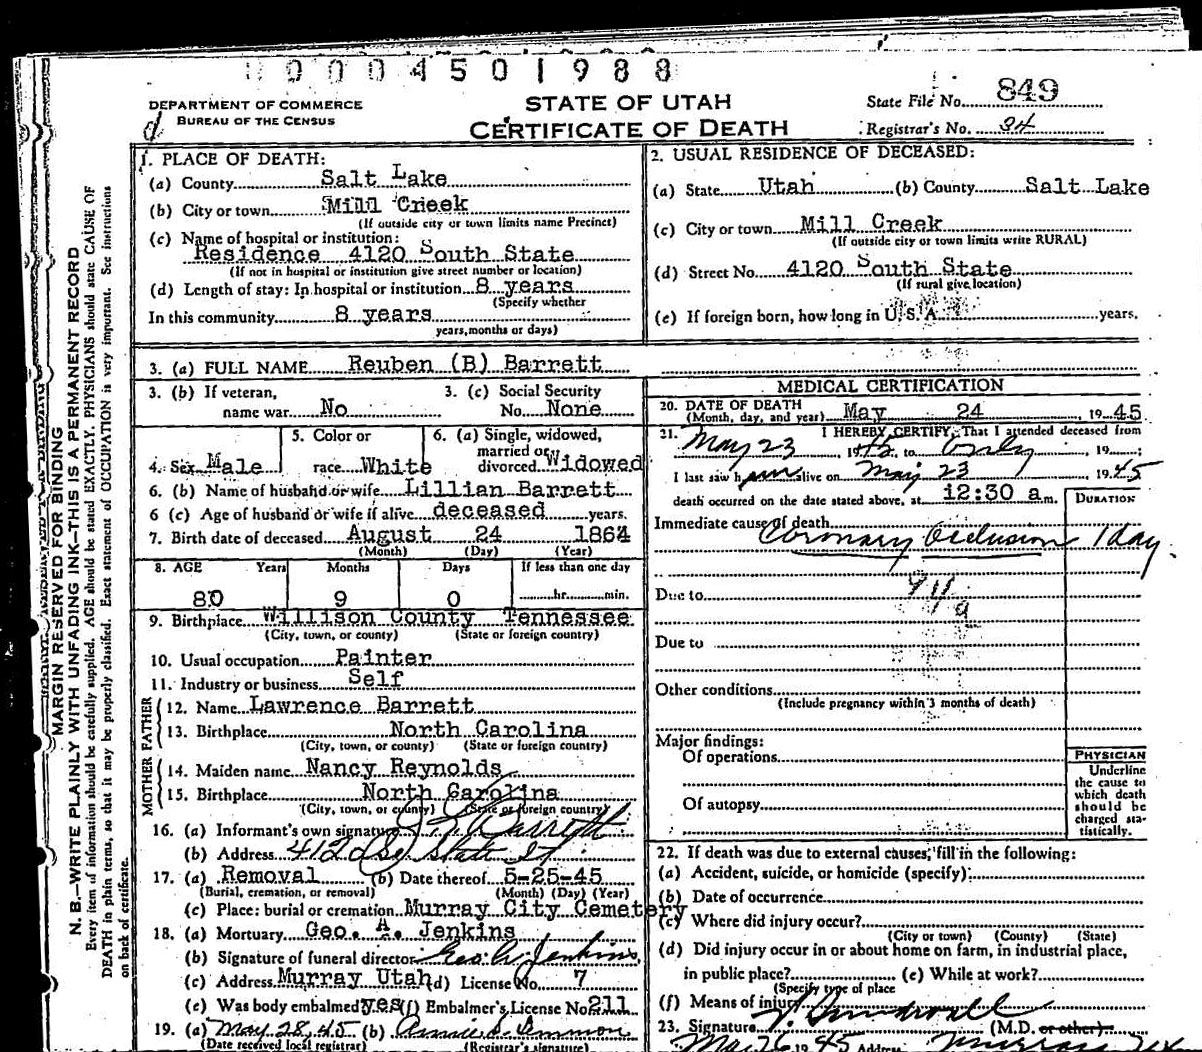 0004501988
DEPARTMENT OF COMMERCE
BUREAU OF THE CENSUS
STATE OF UTAH
CERTIFICATE OF DEATH
State File No. 849
Registrar's No. 34
MARGIN RESERVED FOR BINDING
N. B.—WRITE PLAINLY WITH UNFADING INK—THIS IS A PERMANENT RECORD
Every item of information should be carefully supplied. AGE should be stated EXACTLY. PHYSICIANS should state CAUSE OF
DEATH in plain terms, so that it may be properly classified. Exact statement of OCCUPATION is very important. See instructions
on back of certificate.
1. PLACE OF DEATH:
(a) County Salt Lake
(b) City or town Mill Creek
(If outside city or town limits name Precinct)
(c) Name of hospital or institution:
Residence 4120 South State
(If not in hospital or institution give street number or location)
(d) Length of stay: In hospital or institution 8 years
(Specify whether
In this community 8 years
years, months or days)
2. USUAL RESIDENCE OF DECEASED:
(a) State Utah (b) County Salt Lake
(c) City or town Mill Creek
(If outside city or town limits write RURAL)
(d) Street No. 4120 South State
(If rural give location)
(e) If foreign born, how long in U. S. A. years.
3. (a) FULL NAME Reuben (B) Barrett
3. (b) If veteran, name war No
3. (c) Social Security No. None
4. Sex Male
5. Color or race White
6. (a) Single, widowed, married or divorced Widowed
6. (b) Name of husband or wife Lillian Barrett
6 (c) Age of husband or wife if alive deceased years.
7. Birth date of deceased August 24 1864
(Month) (Day) (Year)
8. AGE Years Months Days If less than one day
80 9 0 hr. min.
9. Birthplace Willison County Tennessee
(City, town, or county) (State or foreign country)
10. Usual occupation Painter
11. Industry or business Self
FATHER
12. Name Lawrence Barrett
13. Birthplace North Carolina
(City, town, or county) (State or foreign country)
MOTHER
14. Maiden name Nancy Reynolds
15. Birthplace North Carolina
(City, town, or county) (State or foreign country)
16. (a) Informant's own signature Barrett
(b) Address 4120 So State St
17. (a) Removal (b) Date thereof 5-25-45
(Burial, cremation, or removal) (Month) (Day) (Year)
(c) Place: burial or cremation Murray City Cemetery
18. (a) Mortuary Geo. A. Jenkins
(b) Signature of funeral director Geo. A. Jenkins
(c) Address Murray Utah (d) License No. 7
(e) Was body embalmed yes (f) Embalmer's License No 211
19. (a) May 28, 45 (b)
(Date received local registrar) (Registrar's signature)
MEDICAL CERTIFICATION
20. DATE OF DEATH
(Month, day, and year) May 24, 1945
21. I HEREBY CERTIFY, That I attended deceased from
May 23 1945, to Only, 19 ;
I last saw him alive on May 23 1945
death occurred on the date stated above, at 12:30 a m.
DURATION
Immediate cause of death
Coronary Occlusion 1 day.
Due to
Due to
Other conditions
(Include pregnancy within 3 months of death)
Major findings:
Of operations
Of autopsy
PHYSICIAN
Underline
the cause to
which death
should be
charged sta-
tistically.
22. If death was due to external causes, fill in the following:
(a) Accident, suicide, or homicide (specify)
(b) Date of occurrence
(c) Where did injury occur?
(City or town) (County) (State)
(d) Did injury occur in or about home on farm, in industrial place,
in public place? (e) While at work?
(Specify type of place
(f) Means of injury
23. Signature (M.D. or other)
May 26 1945 Address